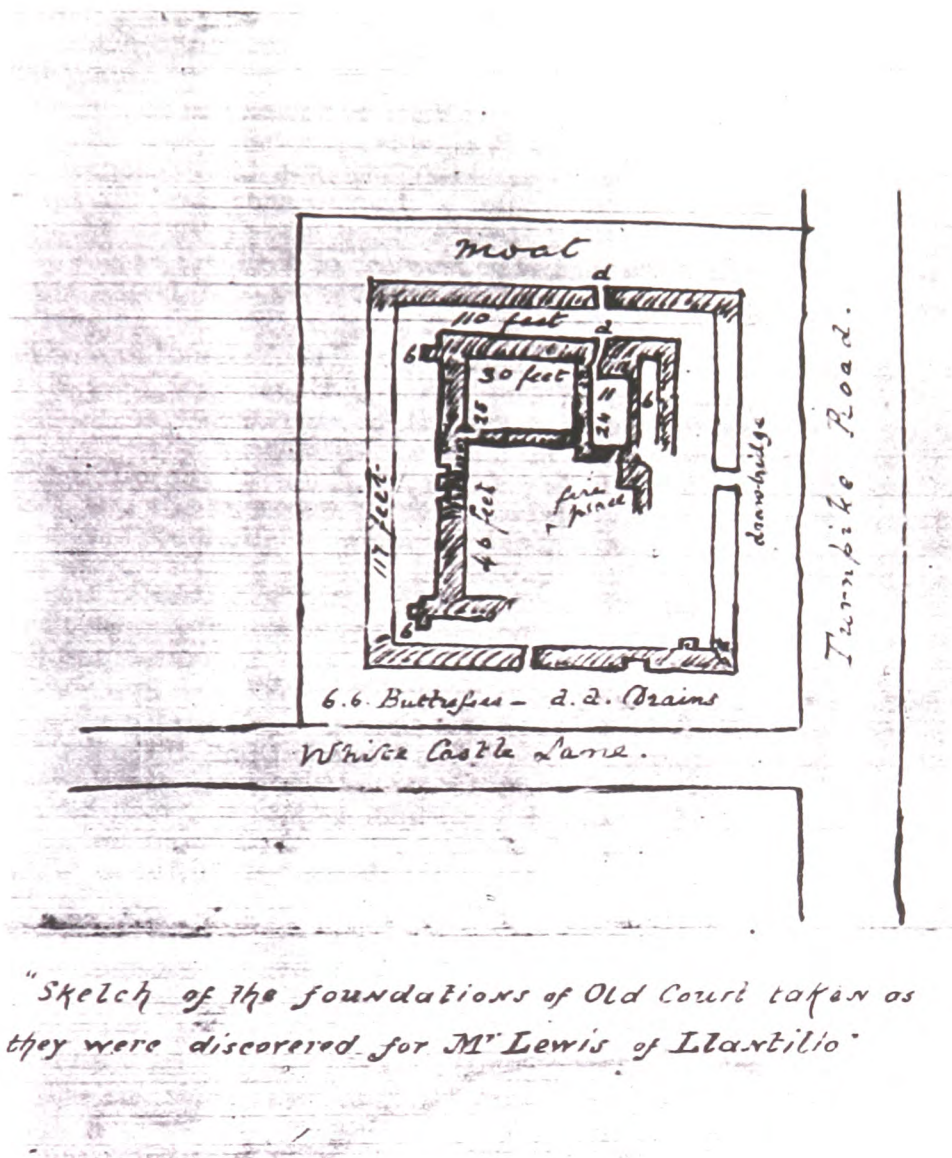 moat
d
110 feet
d
6
30 feet
11
6
25
24
drawbridge
117 feet
fire
place
46 feet
6
Turnpike Road.
6.6. Buttresses – d.d. Drains
White Castle Lane.
"Sketch of the foundations of Old Court taken as
they were discovered for Mr Lewis of Llantilio"